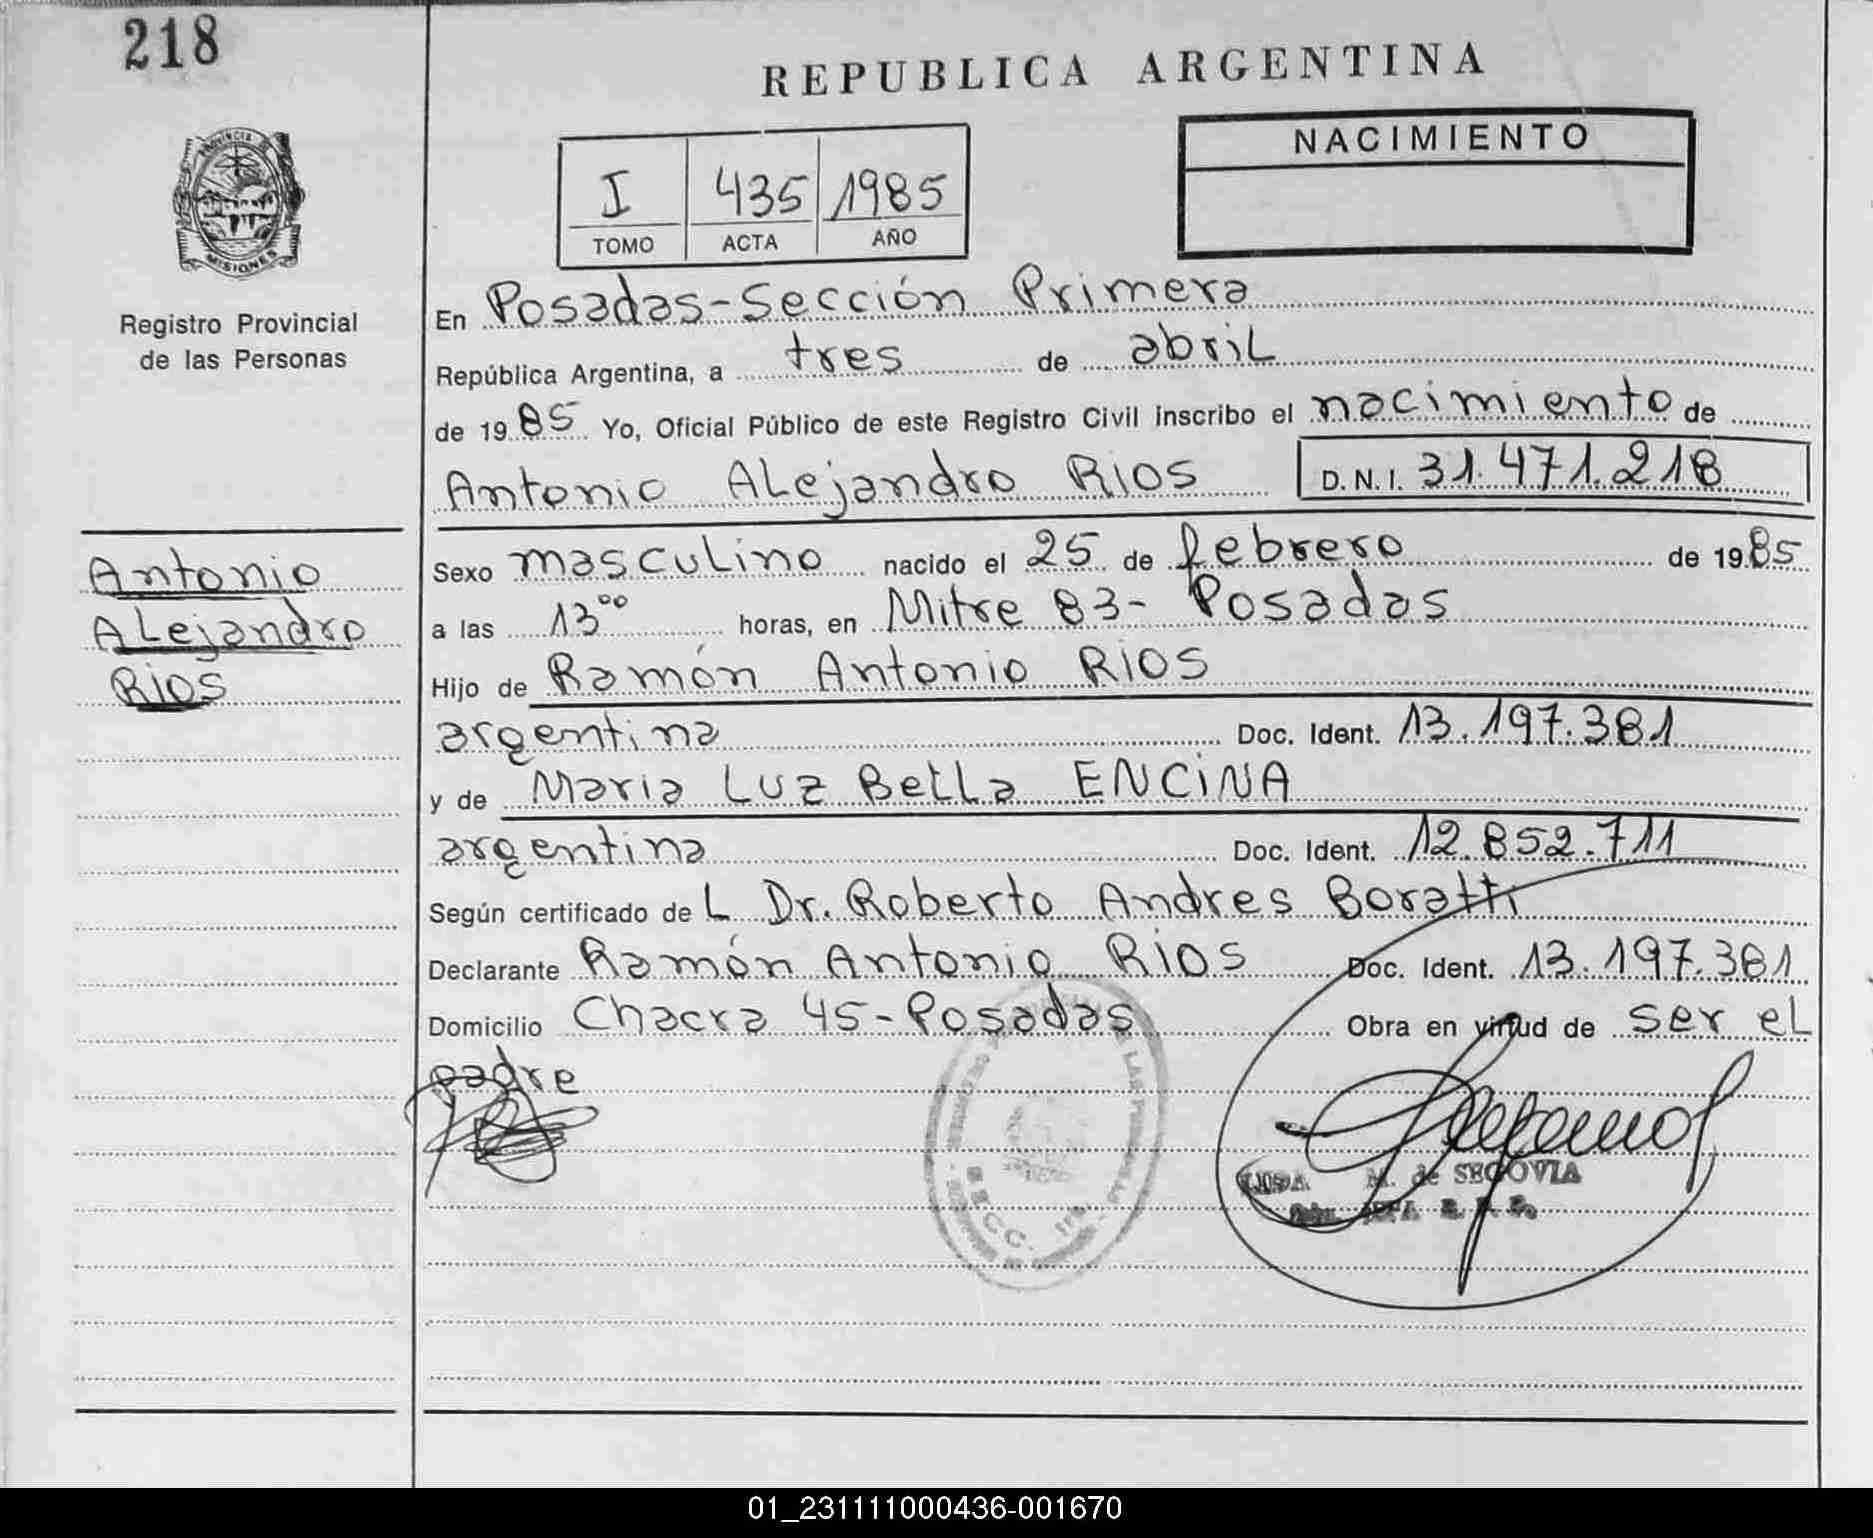 218
REPUBLICA ARGENTINA
PROVINCIA DE
MISIONES
Registro Provincial
de las Personas
I 435 1985
TOMO ACTA AÑO
NACIMIENTO
En Posadas-Sección Primera
República Argentina, a tres de abril
de 1985 Yo, Oficial Público de este Registro Civil inscribo el nacimiento de
Antonio Alejandro RIOS D.N.I. 31.471.218
Antonio
Alejandro
RIOS
Sexo masculino nacido el 25 de febrero de 1985
a las 13⁰⁰ horas, en Mitre 83- Posadas
Hijo de Ramón Antonio RIOS
argentina Doc. Ident. 13.197.381
y de Maria Luz Bella ENCINA
argentina Doc. Ident. 12.852.711
Según certificado de L Dr. Roberto Andres Boratti
Declarante Ramón Antonio RIOS Doc. Ident. 13.197.381
Domicilio Chacra 45-Posadas Obra en virtud de ser el
padre
DE LAS
SECC. 1ra.
M. de SEGOVIA
01_231111000436-001670